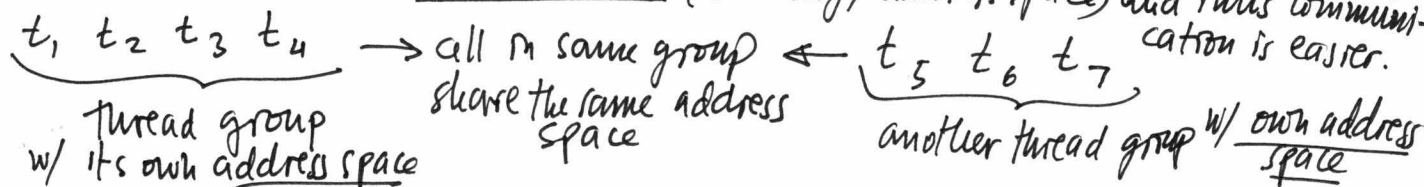 and thus communi-
cation is easier.
t₁ t₂ t₃ t₄ → all in same group ← t₅ t₆ t₇
share the same address
space
thread group
w/ its own address space
another thread group w/ own address
space